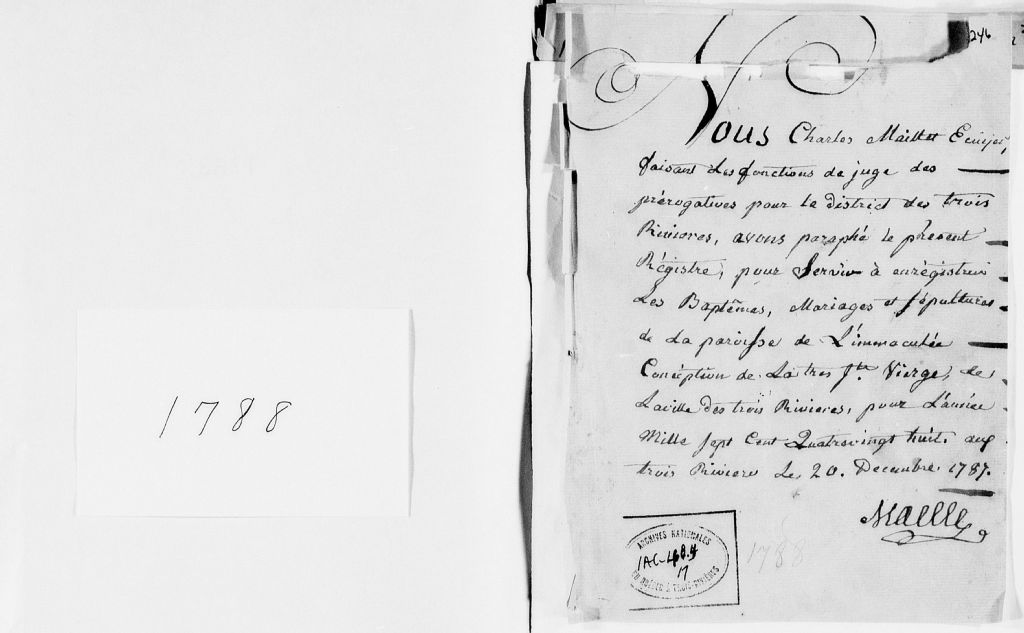 1788
246
Nous Charles Maillet Ecuijer,
faisant Les fonctions de juge des
prérogatives pour le district des trois
Rivieres, avons paraphé le present
Régistre, pour Servir à enrégistrer
Les Baptêmes, Mariages et sépultures
de La paroisse de L'immaculée
Conception de La tres Ste. Vierge, de
Laville des trois Rivieres, pour L'année
Mille sept Cent Quatrevingt huit. aux
trois Riviere Le 20. Decembre 1787.
ARCHIVES NATIONALES
17
DU QUÉBEC À TROIS-RIVIÈRES
1788